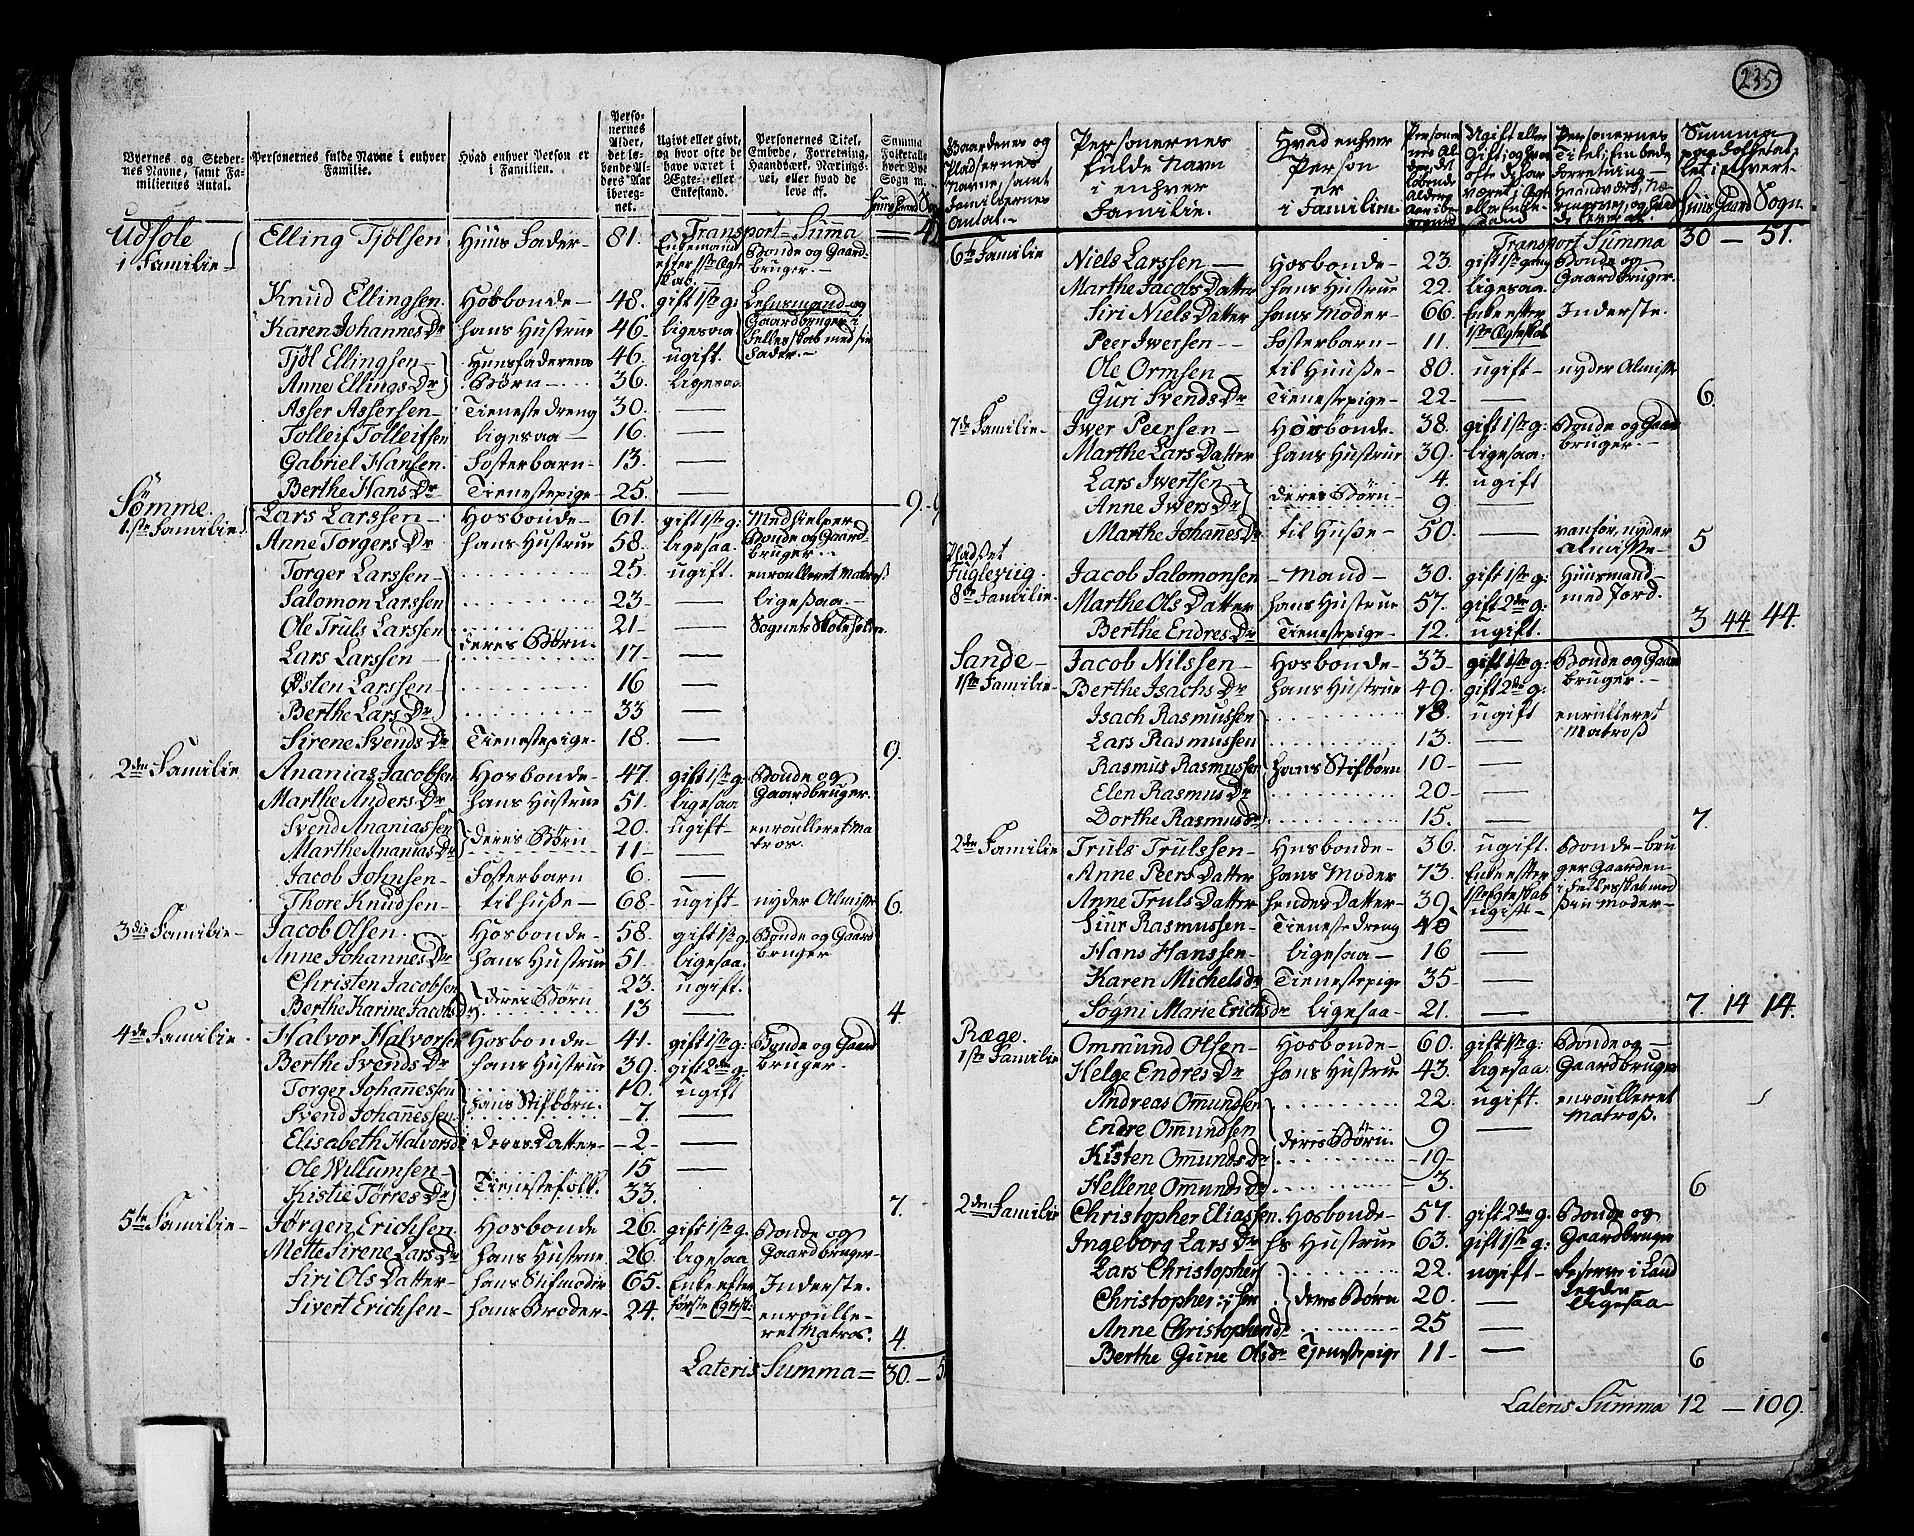 Byernes og Steder-
nes Navne, samt Fa-
miliernes Antal.
Personernes fulde Navne i enhver
Familie.
Hvad enhver Person er
i Familien.
Perso-
nernes
Alder,
det lø-
bende Al-
ders Aar
ibereg-
net.
Ugivt eller givt,
og hvor ofte de
have været i
Ægte- eller
Enkestand.
Personernes Titel,
Embede, Forretning,
Haandværk, Nærings-
vei, eller hvad de
leve af.
Summa
Folketallet
hver Bye
Sogn
Transport Summa
Udsole
1 Familie
Elling Tjølsen Huus Fader 81. Enkemand efter 1ste Ægteskab Bonde og Gaardbruger.
Knud Ellingsen Hosbonde 48. gift 1ste g: Lehnsmand og
Karen Johannes Dr hans Hustrue 46. ligesaa Gaardbruger i Fellesskab med sin Fader.
Tjøl Ellingsen Huusfaderens 46. ugift.
Anne Ellings Dr Børn 36. ligesaa
Asser Assersen Tienestedreng 30. —
Tolleif Tolleifsen ligesaa 16. —
Gabriel Hansen Fosterbarn 13. —
Berthe Hans Dr Tienestepige 25. — 9.
Sömme.
1ste Familie
Lars Larssen Hosbonde 61. gift 1ste g: Medhielper
Anne Torgers Dr hans Hustrue 58. ligesaa. Bonde og Gaardbruger.
Torger Larssen 25. ugift. enroulleret Matros
Salomon Larssen 23 — ligesaa.
Ole Truls Larssen deres Børn. 21 — Sognets Skoleholder
Lars Larssen 17 —
Østen Larssen 16 —
Berthe Lars Dr 33 —
Sirene Svends Dr Tienestepige 18. — 9.
2den Familie
Ananias Jacobsen Hosbonde 47. gift 1ste g. Bonde og
Marthe Anders Dr hans Hustrue 51. ligesaa Gaardbruger.
Svend Ananiassen deres Børn 20. ugift enroulleret Matros.
Marthe Ananias Dr 11 —
Jacob Johnsen Fosterbarn 6. —
Thore Knudsen til huße 68. ugift nyder Almisse 6.
3die Familie
Jacob Olsen Hosbonde 58. gift 1ste g. Bonde og Gaardbruger
Anne Johannes Dr hans Hustrue 51. ligesaa.
Christen Jacobsen deres Børn 23. ugift.
Berthe Karine Jacobs Dr 13 — 4.
4de Familie
Halvor Halvorsen Hosbonde 41. gift 1ste g: Bonde og Gaardbruger.
Berthe Svends Dr hans Hustrue 39. gift 2de g:
Torger Johannessen hans Stifbørn. 10. ugift
Svend Johannessen 7. —
Elisabeth Halvorsdr deres Datter 2 —
Ole Willumsen Tienestefolk. 15 —
Kistie Tørres Dr 33. 7.
5te Familie
Jørgen Erichsen Hosbonde 26. gift 1ste g. Bonde og
Mette Sirene Lars Dr hans Hustrue 26. ligesaa Gaardbruger.
Siri Ols Datter hans Stifmoder 65. Enke efter Inderste.
Sivert Erichsen hans Broder 24. første Egtesk: enroulleret Matros. 4.
Lateris Summa = 30.
235
Gaardenes og
Pladsernes
Navne, samt
Familiernes
Antal.
Personernes
fulde Navn
i enhver
Familie.
Hvad enhver
Person
er
i Familien
Transport Summa 30 — 51.
6te Familie
Niels Larssen Hosbonde 23. gift 1ste gang Bonde og
Marthe Jacobs Datter hans Hustrue 22. ligesaa. Gaardbruger.
Siri Niels Datter hans Moder 66. Enke efter 1ste Ægteskab Inderste.
Peer Iwersen Fosterbarn 11.
Ole Ormsen til Huuße 80. ugift nyder Almisse
Guri Svends Dr Tienestepige 22 — 6.
7de Familie
Iwer Peersen Hosbonde 38. gift 1ste g: Bonde og Gaardbruger.
Marthe Lars Datter hans Hustrue 39. ligesaa:
Lars Iwertsen deres Børn 4. ugift
Anne Iwers Dr 9 —
Marthe Johannes Dr til Huße 50. — vanför, nyder Almisse 5
Pladset
Fugleviig.
8de Familie
Jacob Salomonsen Mand 30. gift 1ste g: Huusmand
Marthe Ols Datter hans Hustrue 57. gift 2de g: med Jord.
Berthe Endres Dr Tienestepige 12. ugift. 3 44 44.
Sande
1ste Familie
Jacob Nilssen Hosbonde 33 gift 1ste g: Bonde og Gaardbruger.
Berthe Isachs Dr hans Hustrue 49. gift 2de g:
Isach Rasmussen 18. ugift enrulleret Matroß
Lars Rasmussen 13. —
Rasmus Rasmussen hans Stifbörn 10 —
Elen Rasmus Dr 20 —
Dorthe Rasmusdr 15. — 7.
2den Familie
Truls Trulssen Husbonde 36. ugift. Bonde bru
Anne Peers Datter hans Moder 73. Enke efter 1ste Egteskab ger Gaarden
Anne Truls Datter hendes Datter 39. ugift i Fellesskab med sin Moder
Siur Rasmussen Tienestedreng 40 —
Hans Hanssen ligesaa 16 —
Karen Michelsdr Tienestepige 35 —
Søgni Marie Erichsdr ligesaa 21. — 7. 14 14.
Ræge.
1ste Familie
Ommund Olsen Hosbonde 60. gift 1ste g: Bonde og
Helge Endres Dr hans Hustrue 43. ligesaa. Gaardbruger
Andreas Omundsen 22. ugift. enroulleret Matroß.
Endre Omundsen deres Börn. 9 —
Kisten Omunds Dr 19
Hellene Omunds Dr 3. 6
2den Familie
Christopher Eliassen Hosbonde 57. gift 2de g. Bonde og
Ingeborg Lars Dr hs Hustrue 63. gift 1ste g: Gaardbruger
Lars Christophers 22. ugift Reserve i Land
Christopher :/: sen deres Börn 20. — ligesaa
Anne Christophersdr 25 —
Berthe Gurie Olsdr Tjenestepige 11 — 6
Lateris Summa 12 — 109.